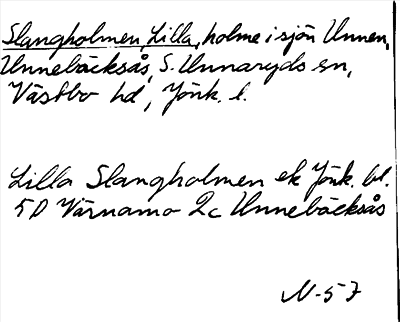 Slangholmen, Lilla, holme i sjön Unnen,
Unnebäcksås, S. Unnaryds sn,
Västbo hd, Jönk. l.
Lilla Slangholmen ek Jönk. bl.
5D Värnamo 2c Unnebäcksås
N-57